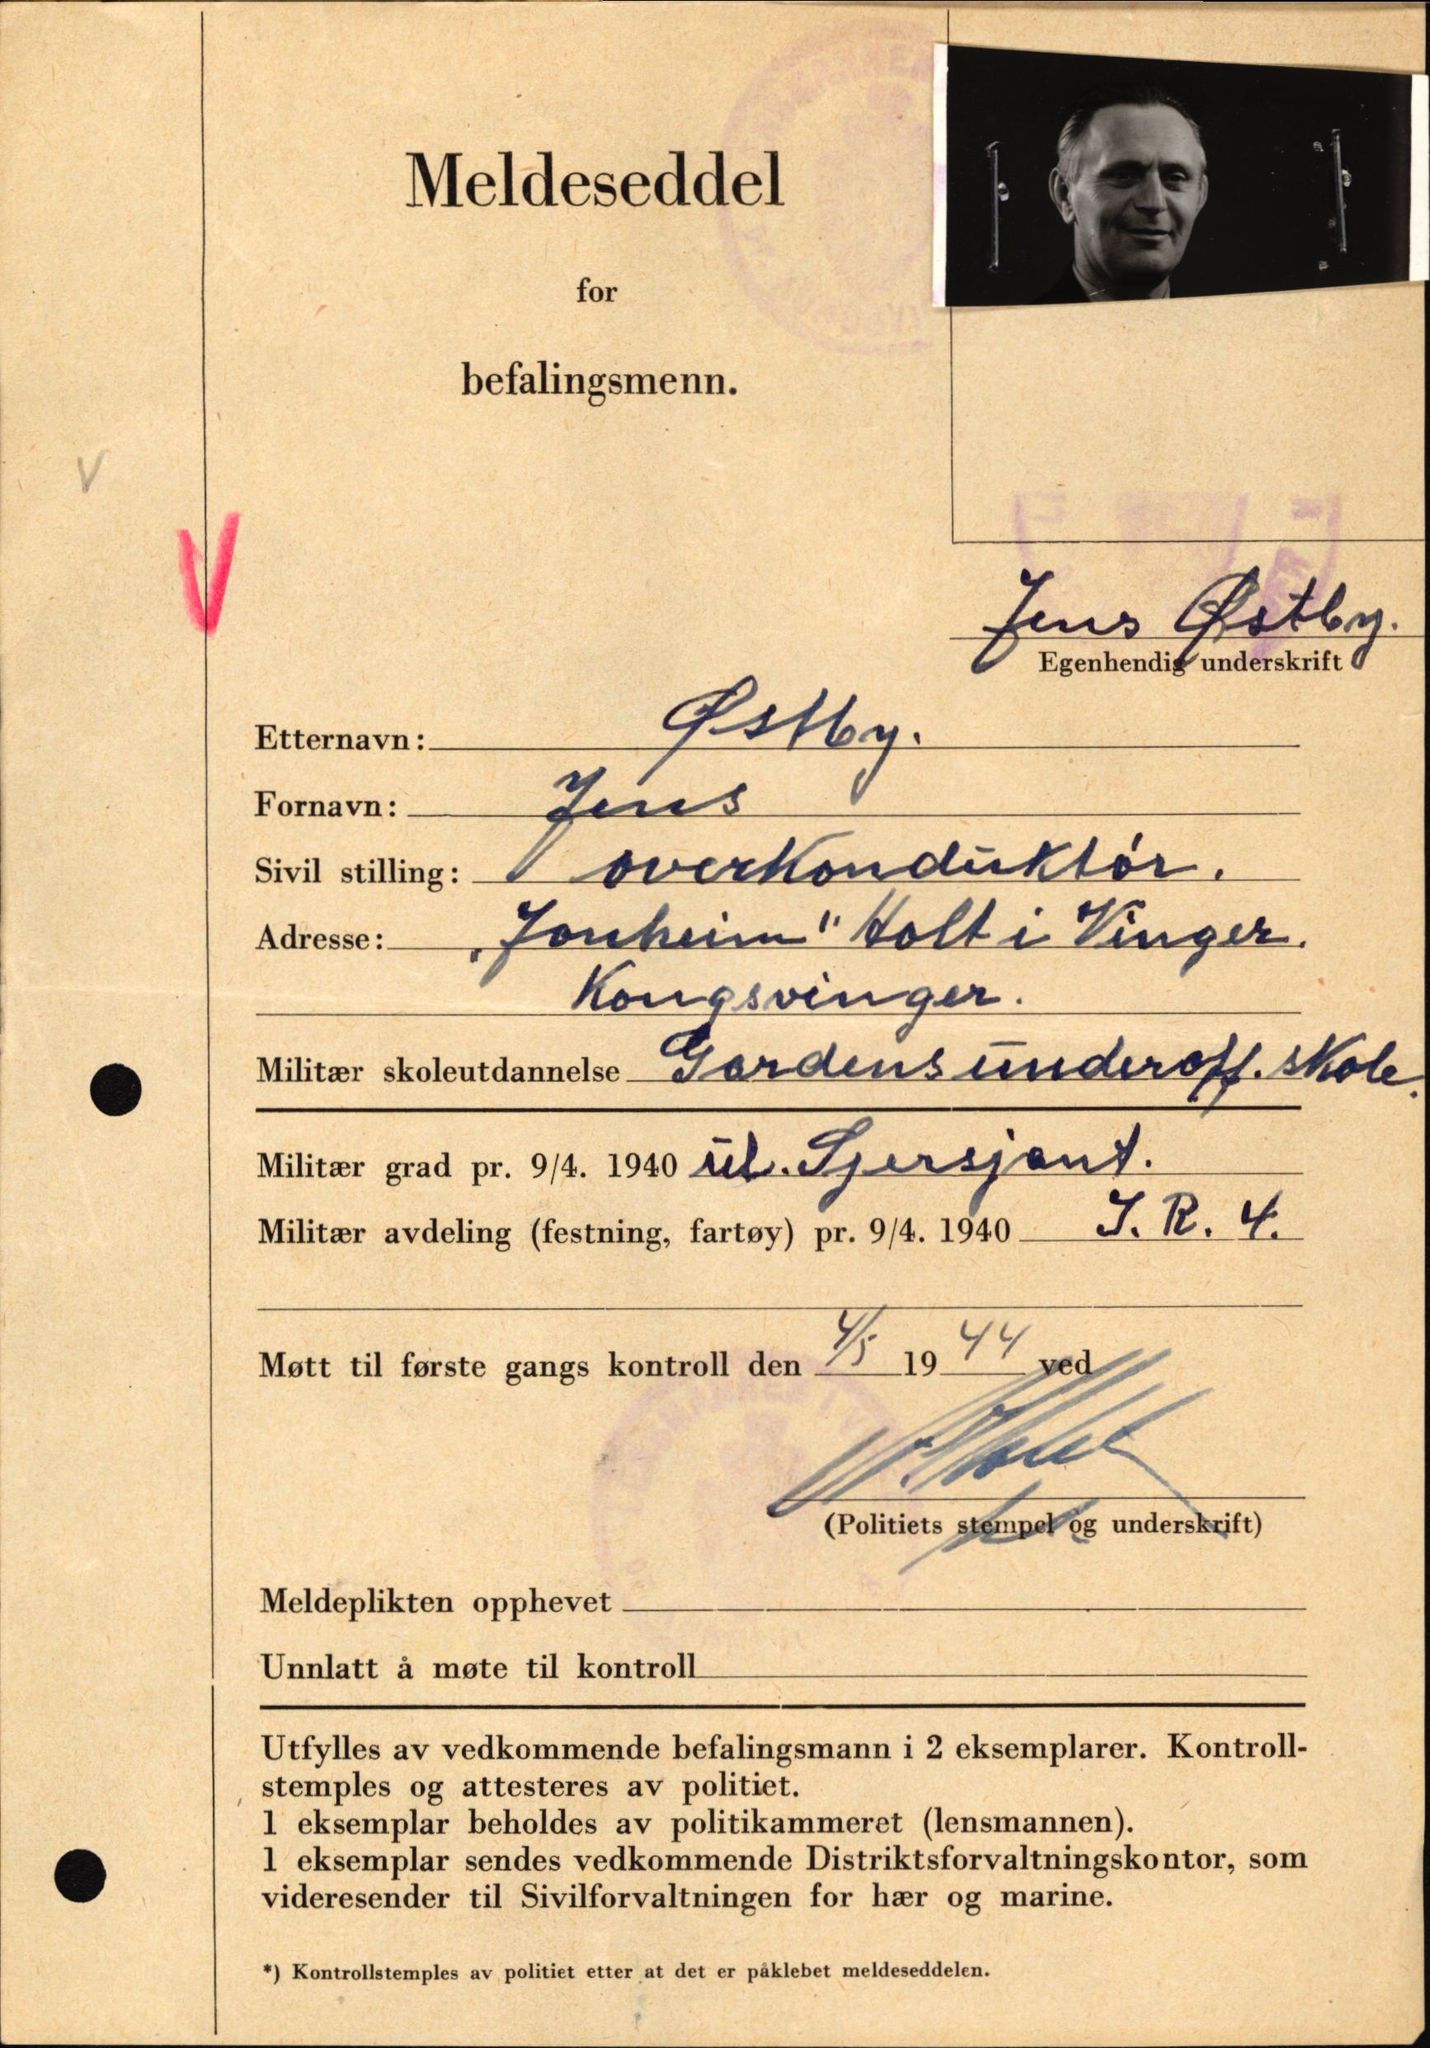 Meldeseddel
for
befalingsmenn.
V
V
Jens Østby.
Egenhendig underskrift
Etternavn: Østby.
Fornavn: Jens
Sivil stilling: overkonduktør.
Adresse: „Jonheim" Holt i Vinger.
Kongsvinger.
Militær skoleutdannelse Gardens underoff. skole.
Militær grad pr. 9/4. 1940 úl. Sjersjant.
Militær avdeling (festning, fartøy) pr. 9/4. 1940 I. R. 4.
Møtt til første gangs kontroll den 4/5 1944 ved
(Politiets stempel og underskrift)
Meldeplikten opphevet
Unnlatt å møte til kontroll
Utfylles av vedkommende befalingsmann i 2 eksemplarer. Kontroll-
stemples og attesteres av politiet.
1 eksemplar beholdes av politikammeret (lensmannen).
1 eksemplar sendes vedkommende Distriktsforvaltningskontor, som
videresender til Sivilforvaltningen for hær og marine.
*) Kontrollstemples av politiet etter at det er påklebet meldeseddelen.